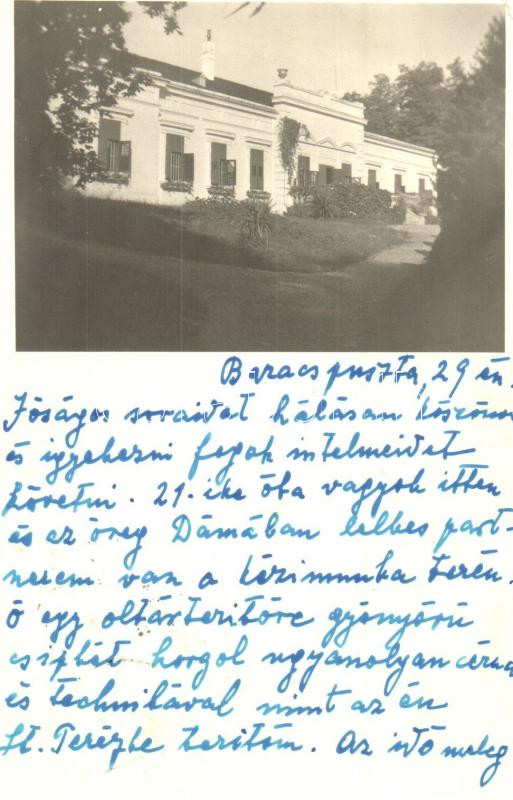 Baracspuszta, 29 én.
Jóságos soraidat hálásan köszönöm
és igyekezni fogok intelmeidet
követni. 21. ike óta vagyok itten
és az öreg Dámában lelkes part-
nerem van a kézimunka terén.
Ő egy oltárterítőre gyönyörű
csipkét horgol ugyanolyan cérna
és technikával mint az én
St. Terézke terítőm. Az idő meleg